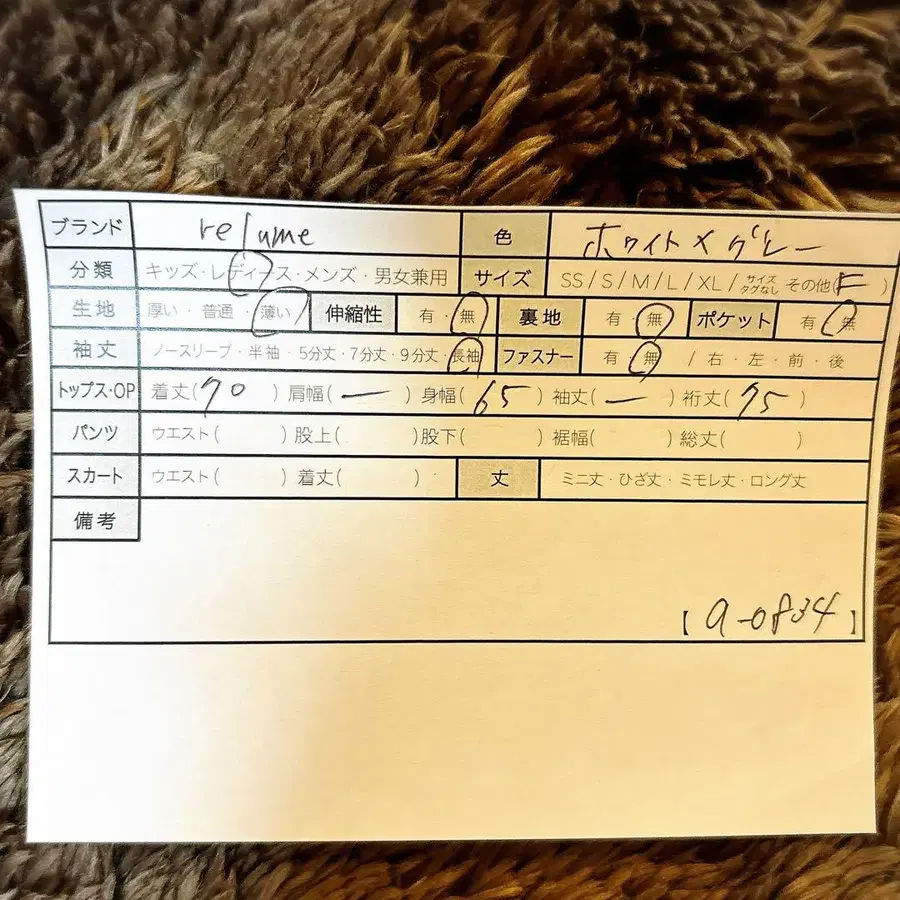 ブランド relume 色 ホワイト×グレー
分類 キッズ・レディース・メンズ・男女兼用 サイズ SS / S / M / L / XL / サイズタグなし その他(F)
生地 厚い・普通・薄い 伸縮性 有・無 裏地 有・無 ポケット 有・無
袖丈 ノースリーブ・半袖・5分丈・7分丈・9分丈・長袖 ファスナー 有・無 / 右・左・前・後
トップス・OP 着丈(70) 肩幅(ー) 身幅(65) 袖丈(ー) 裄丈(75)
パンツ ウエスト( ) 股上( ) 股下( ) 裾幅( ) 総丈( )
スカート ウエスト( ) 着丈( ) 丈 ミニ丈・ひざ丈・ミモレ丈・ロング丈
備考
【a-0834】